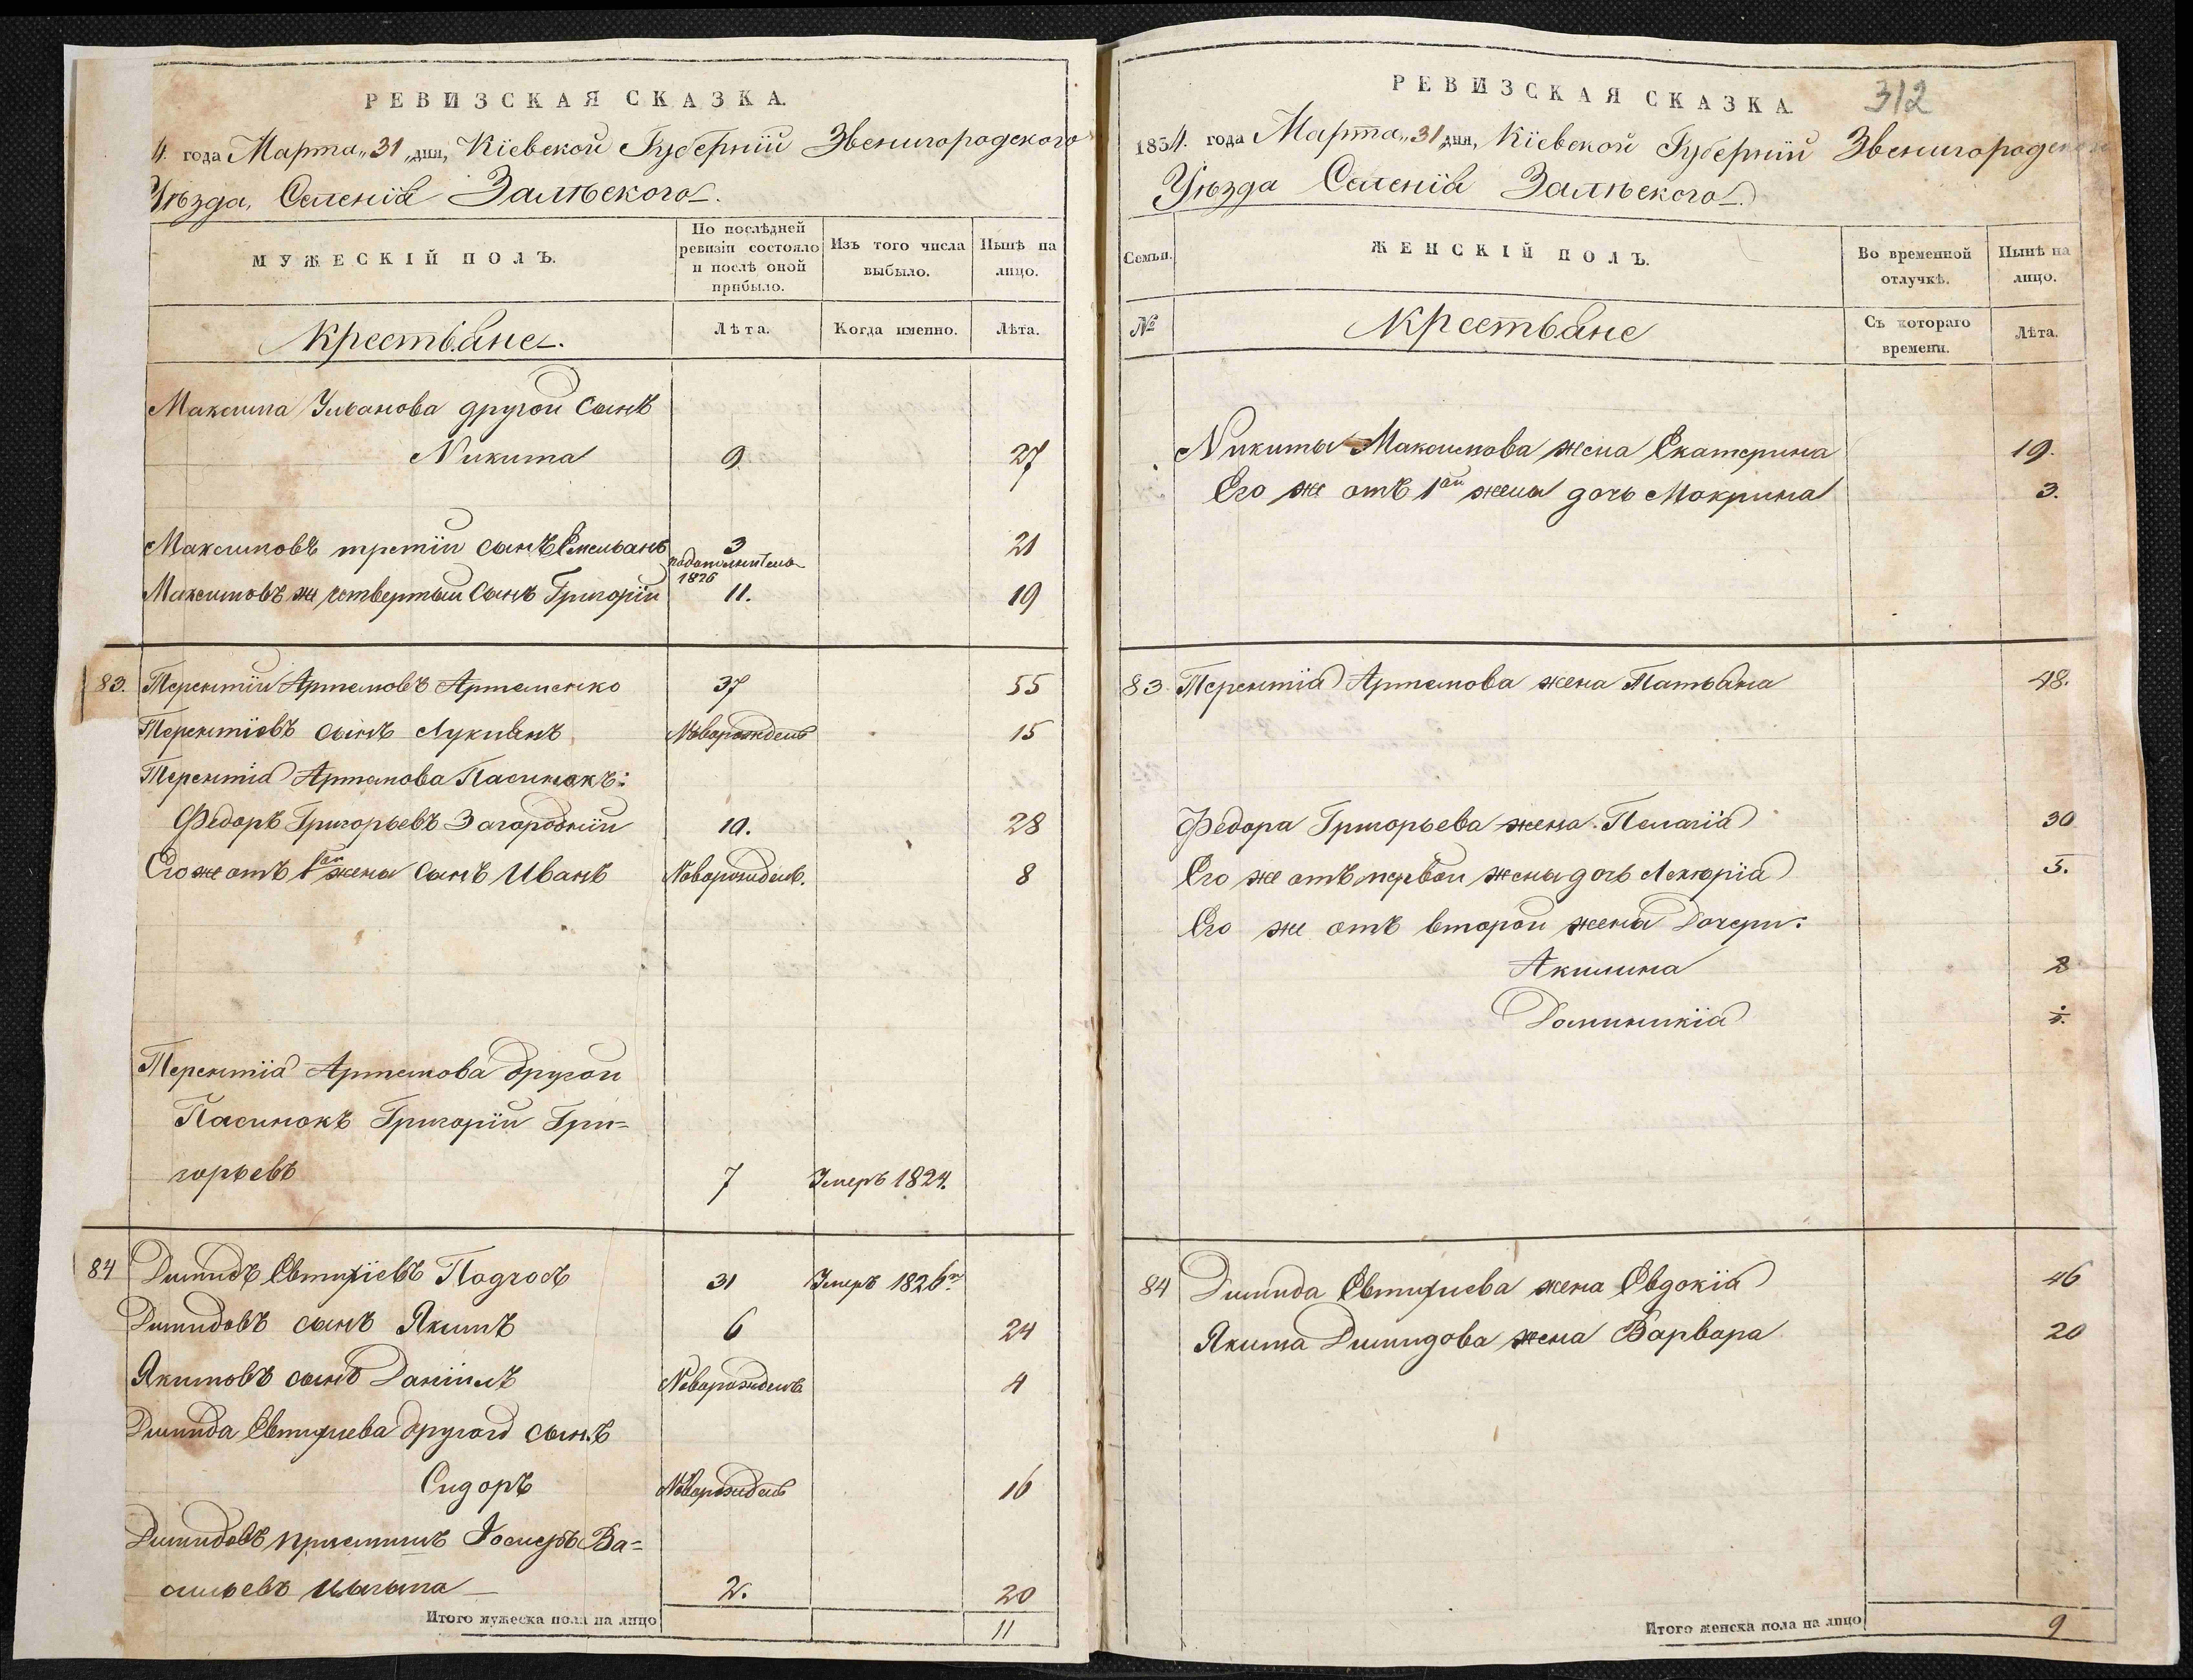 РЕВИЗСКАЯ СКАЗКА.
4. года Марта „31„ дня, Кіевской Губерніи Звенигородского
Уѣзда, Селенія Залѣского.
МУЖЕСКІЙ ПОЛЪ.
По послѣдней ревизіи состояло и послѣ оной прибыло.
Изъ того числа выбыло.
Нынѣ на лицо.
Крестьяне.
Лѣта.
Когда именно.
Лѣта.
Максима Ульянова другой сынъ
Никита 9 27
Максимовъ третій сынъ Емельянъ 3 21
1826
Максимовъ же четвертый сынъ Григорій 11. 19
83. Терентій Артемовъ Артеменко 37 55
Терентіевъ сынъ Лукиянъ Новорожденъ 15
Терентія Артемова Пасинокъ:
Федоръ Григорьевъ Загородній 10. 28
Его же отъ 1ой жены сынъ Иванъ Новорожденъ. 8
Терентія Артемова другой
Пасинокъ Григорій Гри=
горьевъ 7 Умеръ 1824.
84 Димидъ Евтихіевъ 31 Умеръ 1826го
Димидовъ сынъ Якимъ 6 24
Якимовъ сынъ Даніилъ Новорожденъ 4
Димида Евтихиева другой сынъ
Сидоръ Новорожденъ 16
Димидовъ приемышъ Ва=
сильевъ Цыгыка 2. 20
Итого мужеска пола на лицо 11
РЕВИЗСКАЯ СКАЗКА. 312
1834. года Марта „31„ дня, Кіевской Губерніи Звенигородского
Уѣзда Селенія Залѣского.
Семьи.
ЖЕНСКІЙ ПОЛЪ.
Во временной отлучкѣ.
Нынѣ на лицо.
№
Крестьяне
Съ котораго времени.
Лѣта.
Никиты Максимова жена Екатерина 19.
Его же отъ 1ой жены дочь Макрина 3.
83. Терентія Артемова жена Татьяна 48.
Федора Григорьева жена Пелагія 30
Его же отъ первой жены дочь Ликерія 5.
Его же отъ второй жены Дочери:
Акилина 2
Доминикія
84 Димида Евтихиева жена Евдокія 46
Якима Димидова жена Варвара 20
Итого женска пола на лицо 9